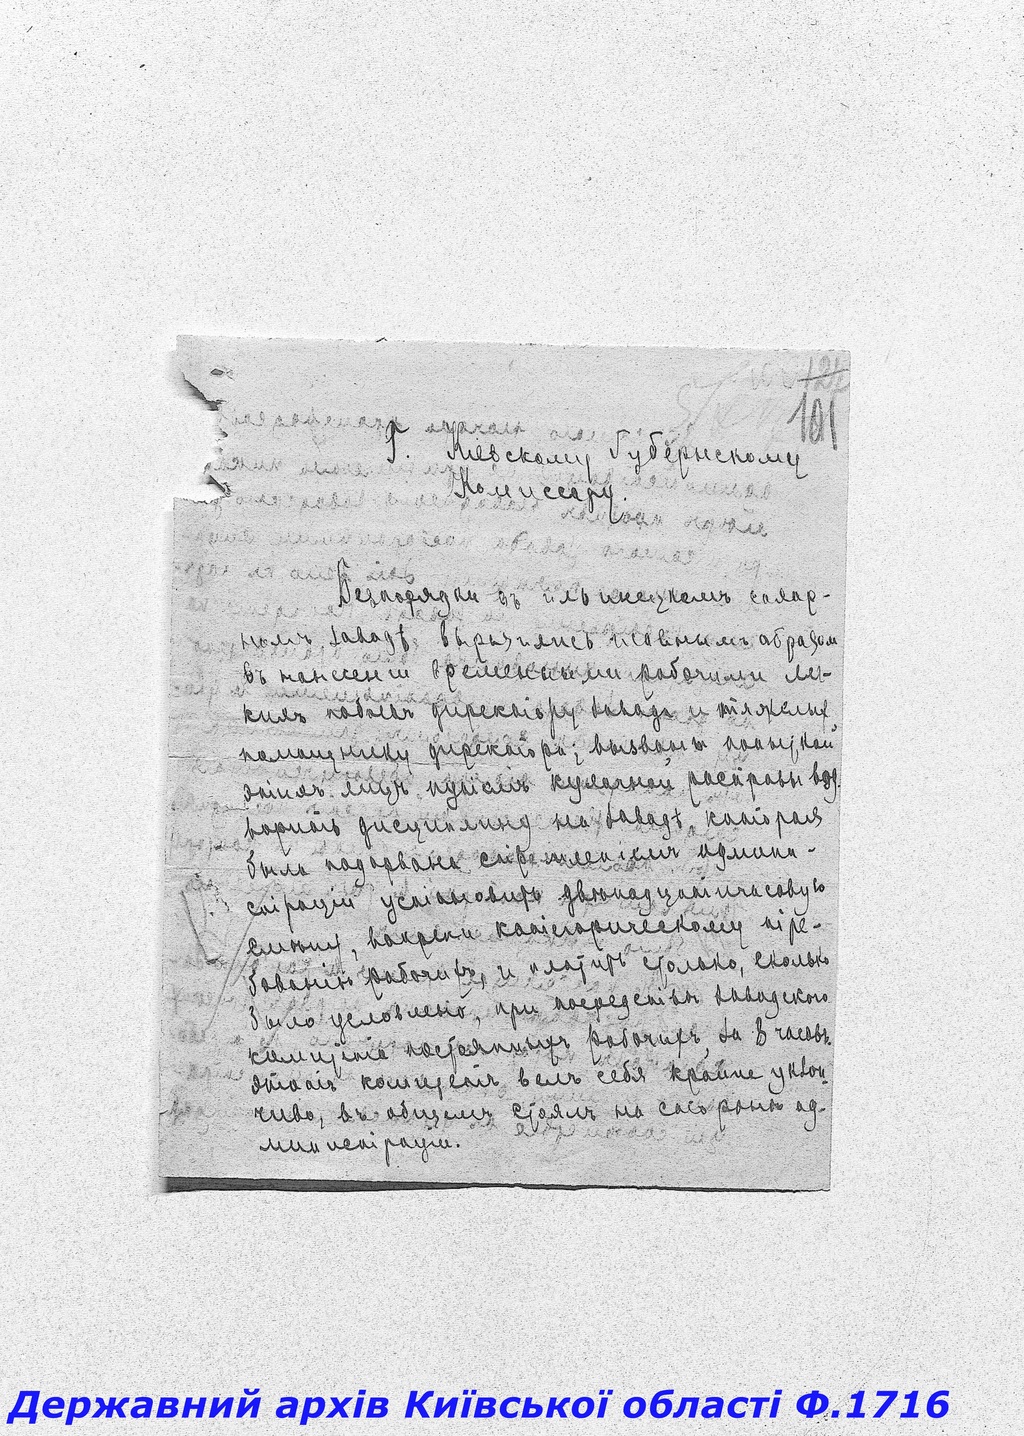 101
Г. Кіевскому Губернскому
Комиссару.
Безпорядки въ Ильинецкомъ сахар-
номъ заводѣ выразились главнымъ образом
въ нанесеніи временными рабочими лег-
кихъ побоевъ директору завода и тяжелыхъ
помощнику директора; вызваны попыткой
этихъ лицъ путемъ кулачной расправы вод-
ворить дисциплину на заводѣ, которая
была подорвана стремленіемъ админи-
страціи установить двѣнадцатичасовую
смѣну, вопреки категорическому тре-
бованію рабочихъ, и платить столько, сколько
было условлено, при посредствѣ заводского
комитета постоянныхъ рабочихъ, за 8 часовъ.
Этотъ комитетъ велъ себя крайне уклон-
чиво, въ общемъ стоялъ на сторонѣ ад-
министраціи.
Державний архів Київської області Ф.1716